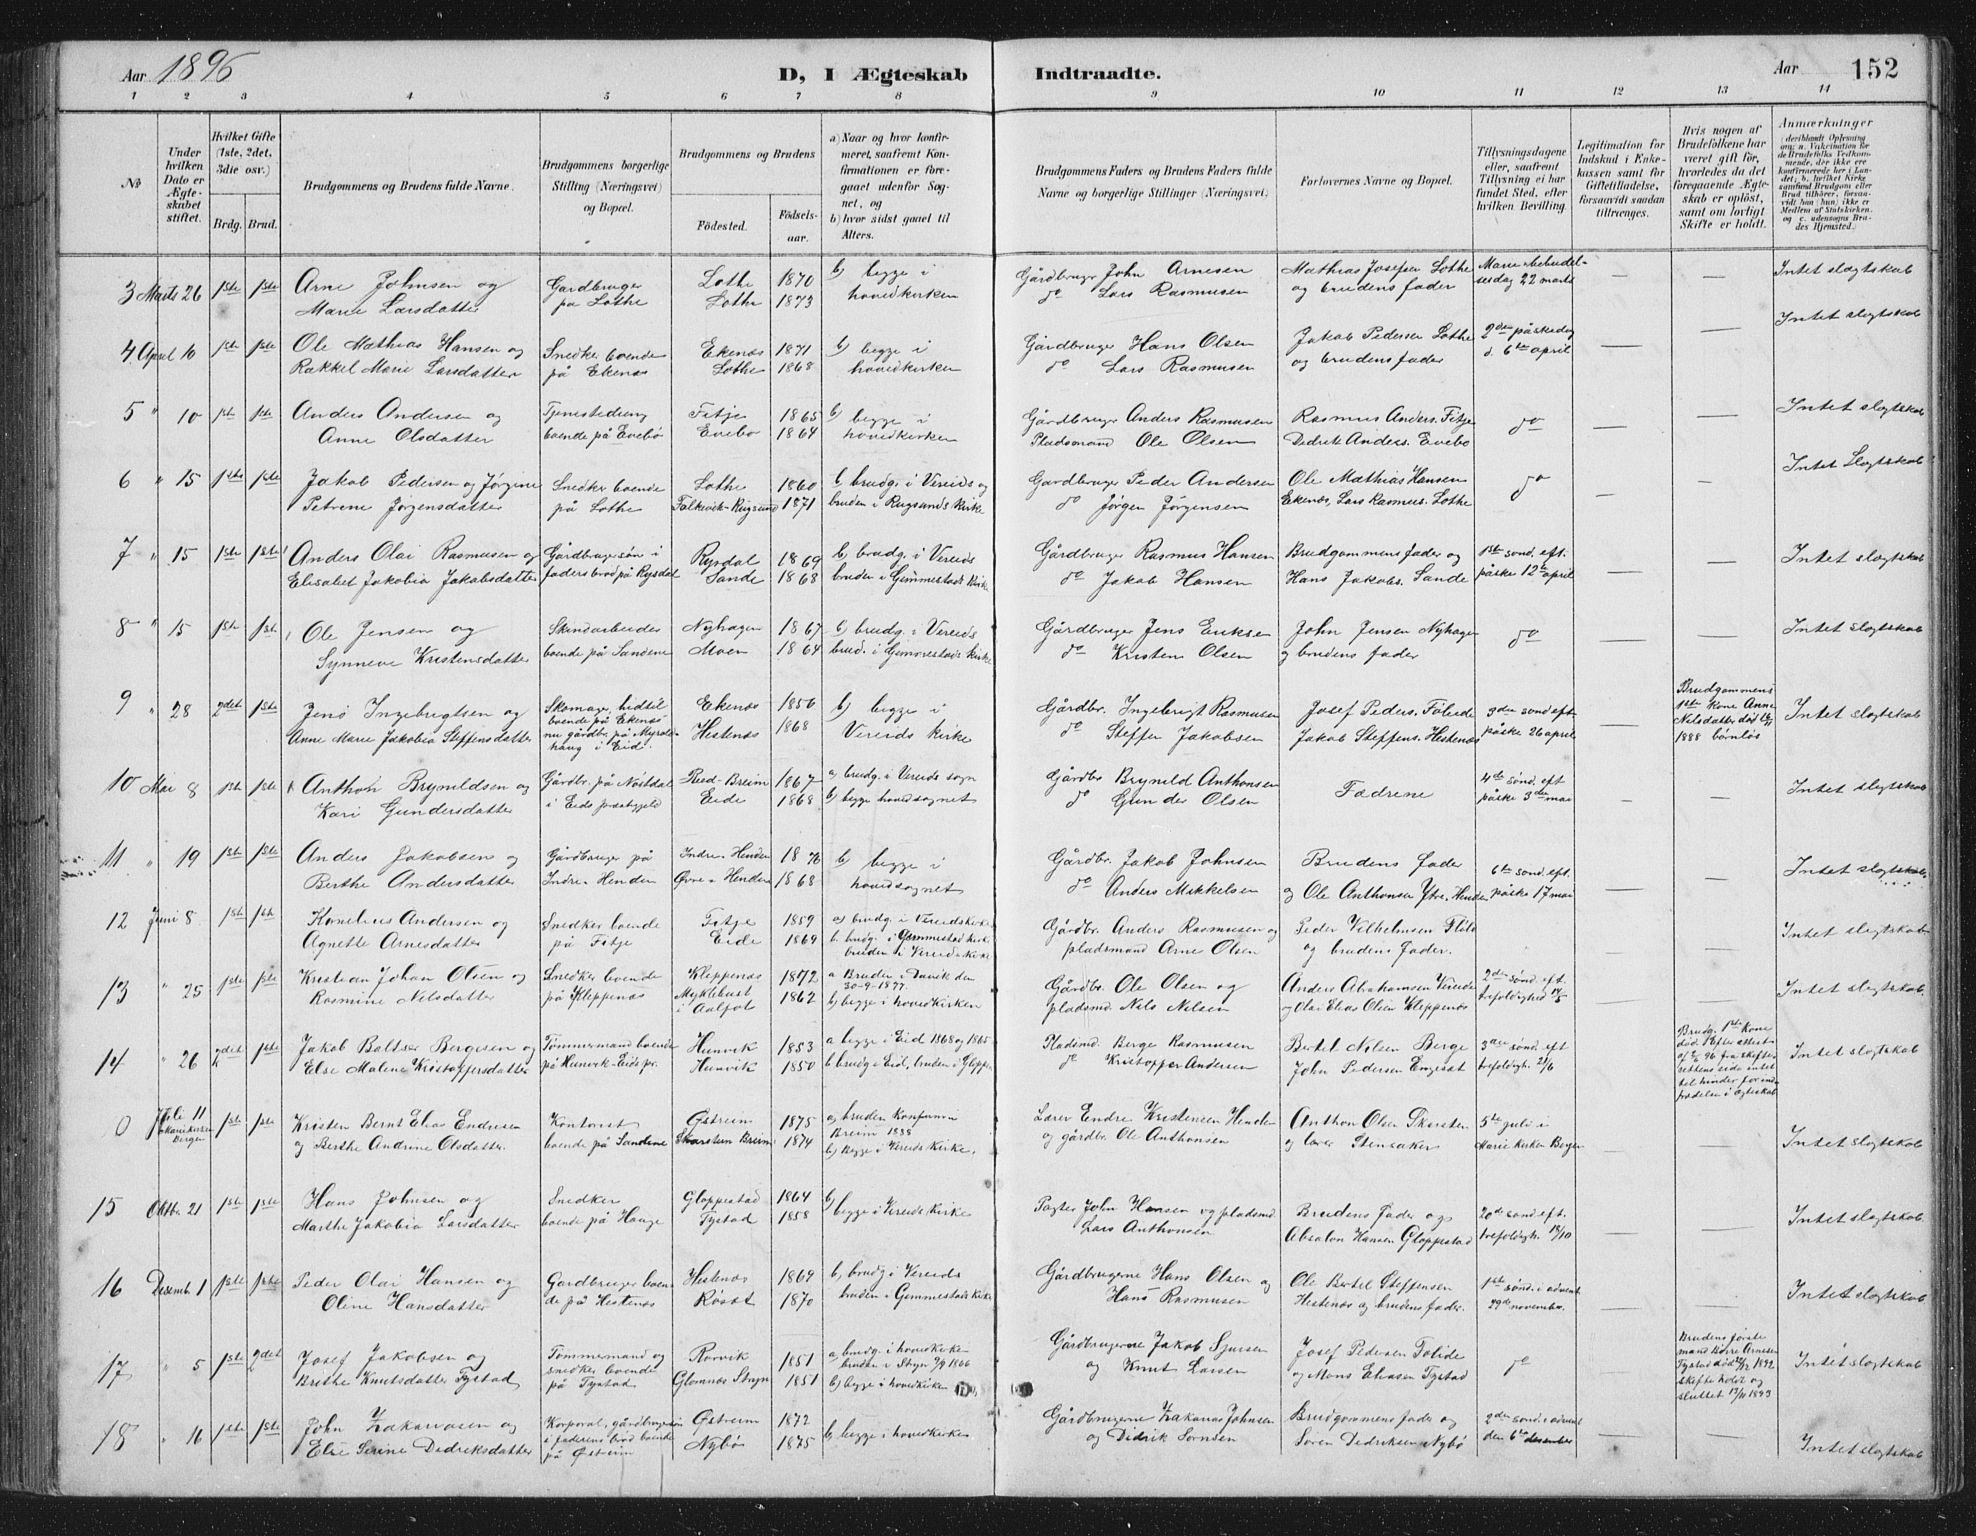 Aar 1896
D, I Ægteskab Indtraadte.
Aar 152
1 2 3 4 5 6 7 8 9 10 11 12 13 14
No
Under hvilken Dato er Ægteskabet stiftet.
Hvilket Gifte (1ste, 2det, 3die osv.)
Brdg. Brud.
Brudgommens og Brudens fulde Navne.
Brudgommens borgerlige Stilling (Næringsvei) og Bopæl.
Brudgommens og Brudens
Fødested.
Fødselsaar.
a) Naar og hvor konfirmeret, saafremt Konfirmationen er foregaaet udenfor Sognet, og
b) hvor sidst gaaet til Alters.
Brudgommens Faders og Brudens Faders fulde Navne og borgerlige Stillinger (Næringsvei)
Forlovernes Navne og Bopæl.
Tillysningsdagene eller, saafremt Tillysning ei har fundet Sted, efter hvilken Bevilling.
Legitimation for Indskud i Enkekassen samt for Giftetilladelse, forsaavidt saadan tiltrænges.
Hvis nogen af Brudefolkene har været gift før, hvorledes da det foregaaende Ægteskab er opløst, samt om lovligt Skifte er holdt.
Anmærkninger
3 Marts 26 1ste 1ste Arne Johnsen og Gårdbruger Lothe 1870 b) begge i Gårdbruger John Arnesen Mathias Josefsen Lothe Marie bebudel- — — Intet slægtskab
Marie Larsdatter på Lothe Lothe 1873 hovedkirken do Lars Rasmusen og brudens fader sesdag 22 marts
4 April 10 1ste 1ste Ole Mathias Hansen og Snedker boende Ekenæs 1871 b) begge i Gårdbruger Hans Olsen Jakob Pedersen Lothe 2den påskedag — — Intet slægtskab
Rakkel Marie Larsdatter på Ekenæs Lothe 1868 hovedkirken do Lars Rasmusen og brudens fader d. 6te april
5 " 10 1ste 1ste Anders Andersen og Tjenestedreng Fitje 1865 b) begge i Gårdbruger Anders Rasmusen Rasmus Anders. Fitje do — — Intet slægtskab
Anne Olsdatter boende på Evebø Evebø 1864 hovedkirken Pladsmand Ole Olsen Didrik Anders. Evebø
6 " 15 1ste 1ste Jakob Pedersen og Jørgine Snedker boende Lothe 1860 b brudg. i Vereids og Gårdbruger Peder Andersen Ole Mathias Hansen do — — Intet Slægtskab
Petrine Jørgensdatter på Lothe Falkevik-Rugsund 1871 bruden i Rugsunds kirke do Jørgen Jørgensen Ekenæs, Lars Rasmus. Lothe
7 " 15 1ste 1ste Anders Olai Rasmusen og Gårdbrugersøn i Rysdal 1869 b) brudg. i Vereids Gårdbruger Rasmus Hansen Brudgommens fader og 1ste sønd. eft. — — Intet slægtskab
Elisabet Jakobia Jakobsdatter faders brød på Rysdal Sande 1868 bruden i Gimmestads kirke do Jakob Hansen Hans Jakobs. Sande påske 12te april
8 " 15 1ste 1ste Ole Jensen og Skindarbeider Nyhagen 1867 b) brudg. i Vereids Gårdbruger Jens Eriksen John Jensen Nyhagen do — — Intet slægtskab
Synneve Kristensdatter boende på Sandene Moen 1864 brud. i Gimmestads kirke do Kristen Olsen og brudens fader
9 " 28 2det 1ste Jens Ingebrigtsen og Skomager, hidtil Ekenæs 1856 b) begge i Gårdbr. Ingebrigt Rasmusen Josef Peders. Tolide 3die sønd eft — Brudgommens Intet slægtskab
Anne Marie Jakobia Steffensdatter boende på Ekenæs nu gårdbr. på Myrold- haug i Eid. Hestenæs 1868 Vereids kirke do Steffen Jakobsen Jakob Steffens. Hestenæs påske 26 april 1ste Kone Anne Nelsdatter død 1888 børnløs
10 Mai 8 1ste 1ste Anthon Brynildsen og Gårdbr. på Nøstdal Reed-Breim 1867 a) brudg. i Vereids sogn Gårdbr. Brynild Anthonsen Fædrene 4de sønd. eft — — Intet slægtskab
Kari Gundersdatter i Eids præstegjeld Eide 1868 b) begge hovedsognet do Gunder Olsen påske 3die mai
11 " 19 1ste 1ste Anders Jakobsen og Gårdbruger på Indre-Henden 1870 b) begge i Gårdbr. Jakob Johnsen Brudens fader 6te sønd. eft. — — Intet slægtskab
Berthe Andersdatter Indre-Henden Øvre-Henden 1868 hovedsognet do Anders Mikkelsen og Ole Anthonsen Ytre-Henden påske 17 mai
12 Juni 8 1ste 1ste Kornelius Andersen og Snedker boende Fitje 1859 a) brudg. i Vereidskirke Gårdbr. Anders Rasmusen og Peder Vilhelmsen — Intet slægtskab
Agnette Arnesdatter på Fitje Eide 1869 b. brudg. i Gimmestad kirke bruden i Vereids kirke pladsmand Arne Olsen og brudens fader.
13 " 25 1ste 1ste Kristian Johan Olsen og Snedker boende Kleppenæs 1872 a Bruden i Davik den 30-9-1877. Gårdbr. Ole Olsen og Anders Abrahamsen Vereide 2den sønd. eft — Intet slægtskab
Rasmine Nilsdatter på Kleppenæs Myklebust i Aalfot 1862 b) begge i hovedkirken pladsmd. Nils Nilsen og Olai Elias Olsen Kleppenæs trefoldighed
14 " 26 2det 1ste Jakob Baltser Bergesen og Tømmermand boende Hunvik 1853 a begge i Eid 1868 og 1865 Pladsmd. Berge Rasmusen Bertel Nilsen Berge 3die sønd. eft Brudg. 1ste Kone Intet slægtskab
Else Malene Kristoffersdatter på Hunvik-Eids pr. Hunvik 1850 b brudg. i Eid, bruden i Gloppen do Kristoffer Andersen John Pedersen Engeset trefoldigh. 21/6 død. Efter attest af 96 fra skifterettens side intet til hinder for indtrædelse i ægteskab
0 Juli 11 Mariekirken Bergen 1ste 1ste Kristen Bernt Elias Endresen Kontorist Østreim 1875 a) bruden Konfirm. i Lærer Endre Kristensen Henden Anthon Olsen Skarsten 5te juli i — — Intet slægtskab
og Berthe Andrine Olsdatter. boende på Sandene Skarstein Breim 1874 Breim 1888 b) begge i Vereids kirke. og gårdbr. Ole Anthonsen og lærer Stensaker Marie kirken Bergen
15 Oktbr. 21 1ste 1ste Hans Johnsen og Snedker Gloppestad 1864 b) begge i Vereids kirke Pagter John Hansen og pladsmd Brudens fader og 20de sønd eft. — — Intet slægtskab
Marthe Jakobia Larsdatter boende på Hauge Tystad 1858 Lars Anthonsen Absalon Hansen Gloppestad trefoldigh. 18/10
16 Desemb. 1 1ste 1ste Peder Olai Hansen og Gårdbruger boen- Hestenæs 1869 b) brudg. i Vereids Gårdbrugerne Hans Olsen og Ole Bertel Steffensen 1ste sønd. i advent — — Intet slægtskab
Oline Hansdatter de på Hestenæs Røset 1870 bruden i Gimmestads kirke Hans Rasmusen Hestenæs og brudens fader. 29de november.
17 " 5 1ste 2det Josef Jakobsen og Tømmermand og Rørvik 1851 a) brudg. i hovedkirken Gårdbrugerne Jakob Sjursen Josef Pedersen Tolide do Brudens første Intet slægtskab
Brithe Knutsdatter Tystad snedker boende på Tystad Glomnæs Stryn 1851 bruden i Stryn 1866 b) begge i hovedkirken og Knut Larsen og Mons Eliasen Tystad mand Børre Arnesen Tystad død 1892 skifte holdt og sluttet 1893
18 " 16 1ste 1ste John Zakariasen og Korporal, gårdbrugersøn Østreim 1872 b) begge i hovedkirken Gårdbrugerne Zakarias Johnsen Brudgommens fader og 2den sønd. i advent — — Intet slægtskab
Else Serine Dedriksdatter i faderens brød boende på Østreim Nybø 1875 og Didrik Sørnsen Søren Dedriksen Nybø den 6te desember